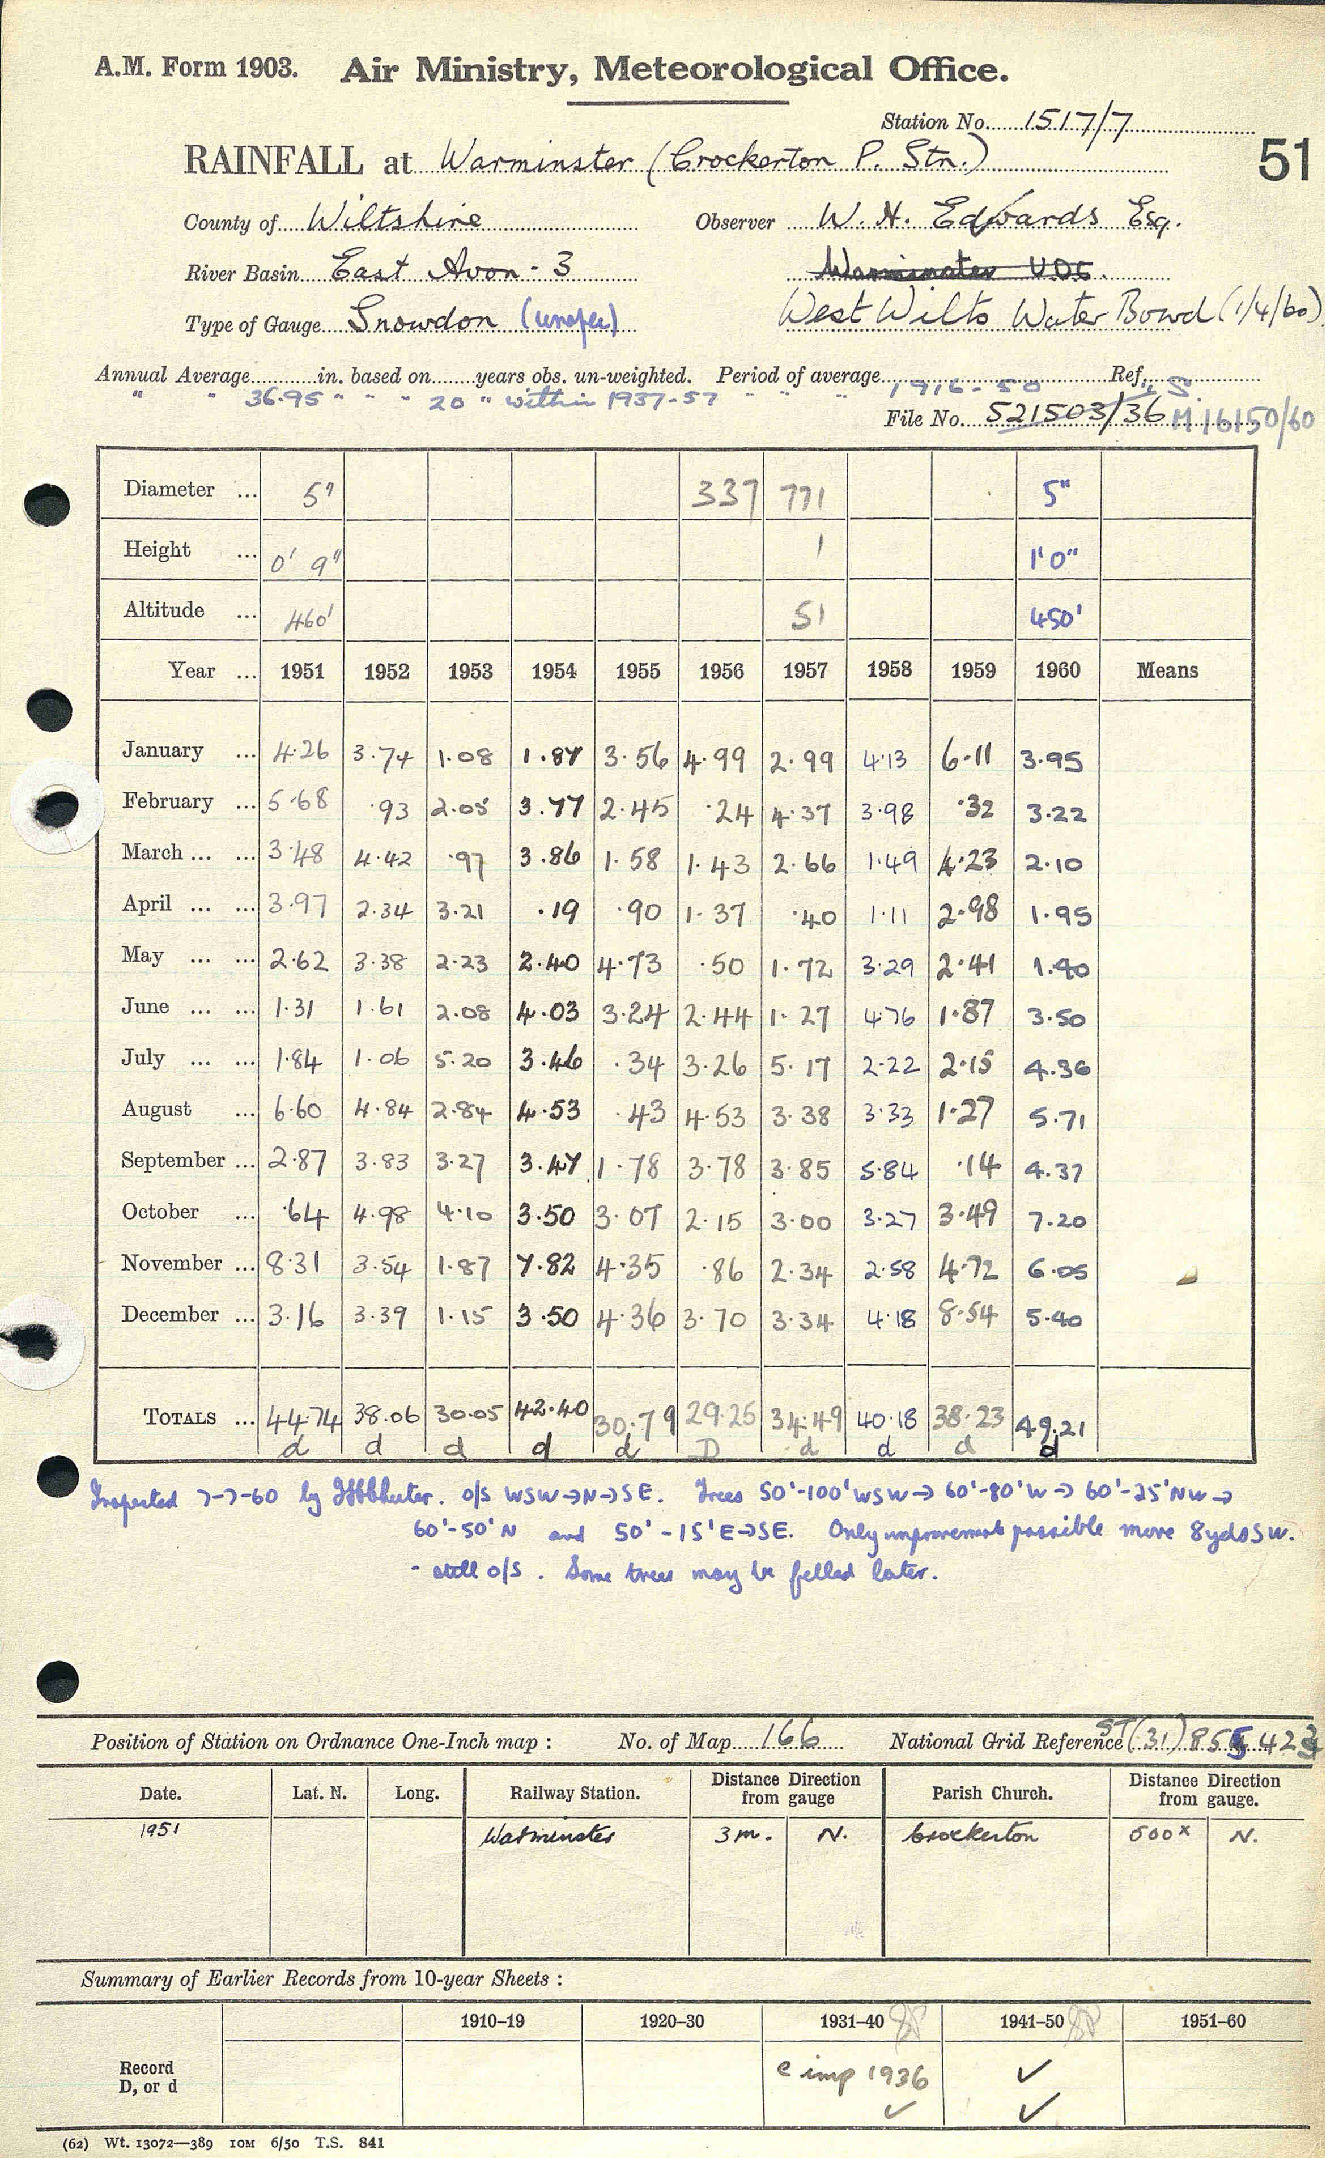 A.M. Form 1903. Air Ministry, Meteorological Office.
Station No. 1517/7
RAINFALL at Warminster (Crockerton P. Stn.)
51
County of Wiltshire Observer W. H. Edwards Esq.
River Basin East Avon - 3 Warminster U.D.C.
Type of Gauge Snowdon (unspec) West Wilts Water Board (1/4/60)
Annual Average in. based on years obs. un-weighted. Period of average 1916-50 Ref.
" " 36.95 " " " 20 " within 1937-57 " " "
File No. 521503/36 M16150/60
Diameter ... 5" 337 771 5"
Height ... 0' 9" 1 1'0"
Altitude ... 460' 51 450'
Year ... 1951 1952 1953 1954 1955 1956 1957 1958 1959 1960 Means
January ... 4.26 3.74 1.08 1.87 3.56 4.99 2.99 4.13 6.11 3.95
February ... 5.68 .93 2.05 3.77 2.45 .24 4.37 3.98 .32 3.22
March ... ... 3.48 4.42 .97 3.86 1.58 1.43 2.66 1.49 4.23 2.10
April ... ... 3.97 2.34 3.21 .19 .90 1.37 .40 1.11 2.98 1.95
May ... ... 2.62 3.38 2.23 2.40 4.73 .50 1.72 3.29 2.41 1.40
June ... ... 1.31 1.61 2.08 4.03 3.24 2.44 1.27 4.76 1.87 3.50
July ... ... 1.84 1.06 5.20 3.46 .34 3.26 5.17 2.22 2.15 4.36
August ... 6.60 4.84 2.84 4.53 .43 4.53 3.38 3.33 1.27 5.71
September ... 2.87 3.83 3.27 3.47 1.78 3.78 3.85 5.84 .14 4.37
October ... .64 4.98 4.10 3.50 3.07 2.15 3.00 3.27 3.49 7.20
November ... 8.31 3.54 1.87 7.82 4.35 .86 2.34 2.58 4.72 6.05
December ... 3.16 3.39 1.15 3.50 4.36 3.70 3.34 4.18 8.54 5.40
TOTALS ... 44.74 38.06 30.05 42.40 30.79 29.25 34.49 40.18 38.23 49.21
d d d d d D d d d d
Inspected 7-7-60 by O/S WSW→N→SE. Trees 50'-100' WSW → 60'-80'W → 60'-25'NW →
60'-50'N and 50'-15'E→SE. Only improvement possible move 8yds SW.
- still o/s. Some trees may be felled later.
Position of Station on Ordnance One-Inch map : No. of Map 166 National Grid Reference ST(31) 855 423
Date. Lat. N. Long. Railway Station. Distance Direction from gauge Parish Church. Distance Direction from gauge.
1951 Warminster 3 m. N. Crockerton 500x N.
Summary of Earlier Records from 10-year Sheets :
1910-19 1920-30 1931-40 1941-50 1951-60
Record D, or d c imp 1936 ✓
✓ ✓
(62) Wt. 13072—389 10M 6/50 T.S. 841